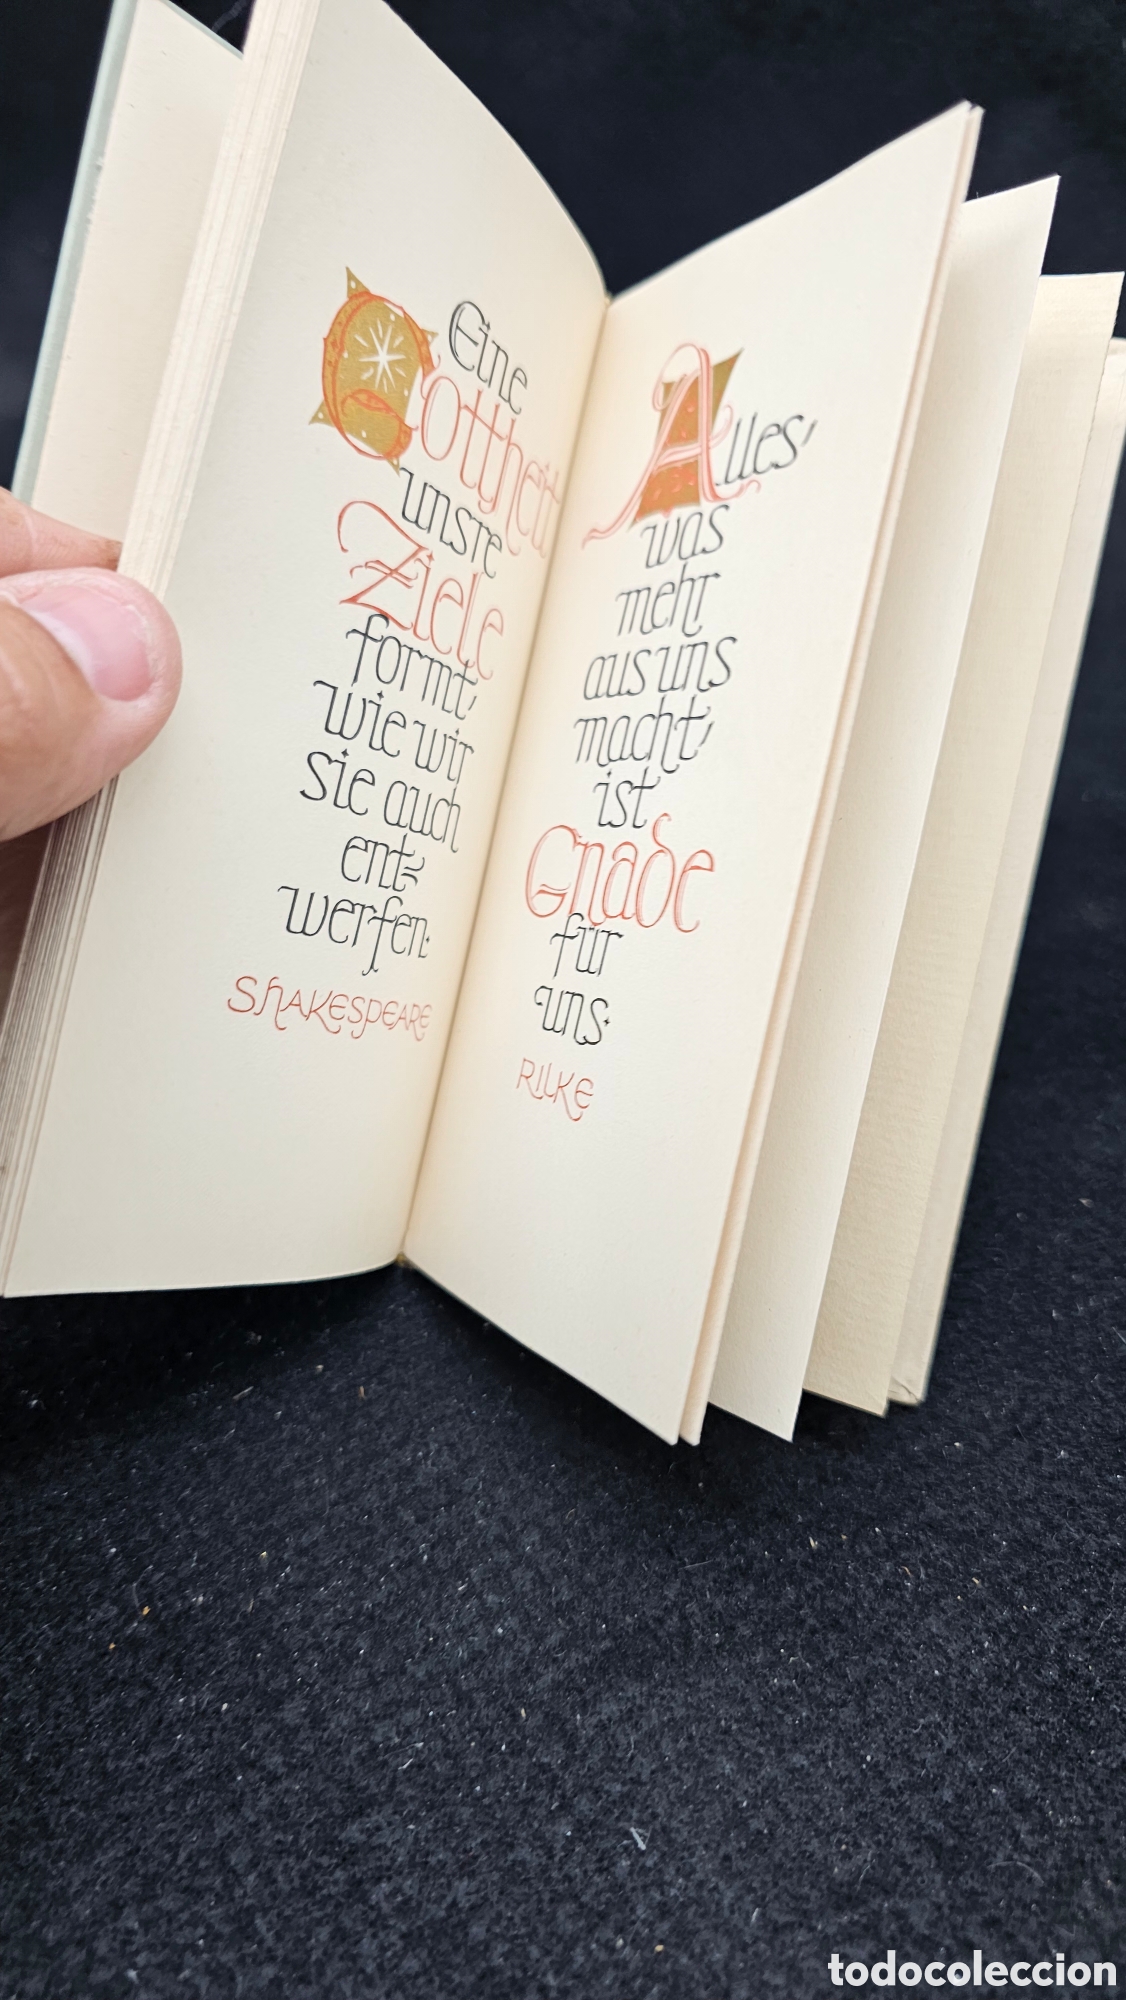 Eine
Gottheit
unsre
Ziele
formt,
wie wir
sie auch
ent=
werfen.
SHAKESPEARE
Alles,
was
mehr
aus uns
macht,
ist
Gnade
für
uns.
RILKE
todocoleccion